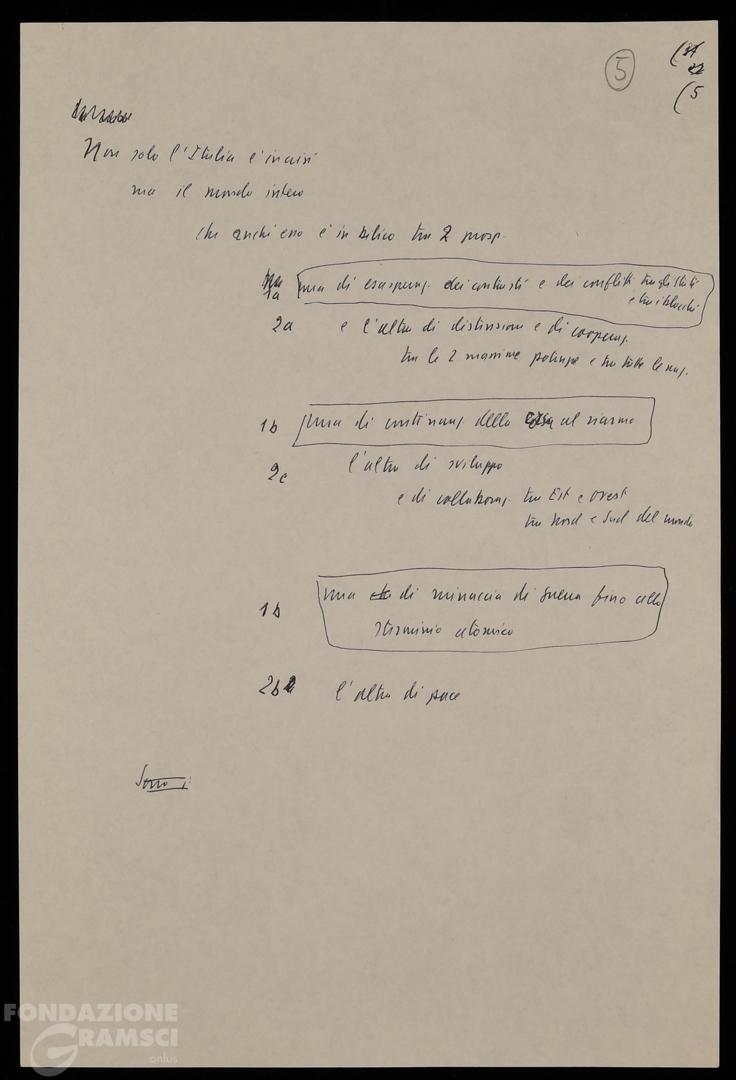 5
(5
Non solo l'Italia è in crisi
ma il mondo intero
che anch'esso è in bilico tra 2 prosp.
1a una di esasperaz. dei contrasti e dei conflitti tra gli Stati
e tra i blocchi
2a e l'altra di distensione e di cooperaz.
tra le 2 massime potenze e tra tutte le naz.
1b una di continuaz. della corsa al riarmo
2c l'altra di sviluppo
e di collaboraz. tra Est e Ovest
tra Nord e Sud del mondo
1b una di minaccia di guerra fino allo
sterminio atomico
2b l'altra di pace
Sono i
FONDAZIONE
GRAMSCI
onlus